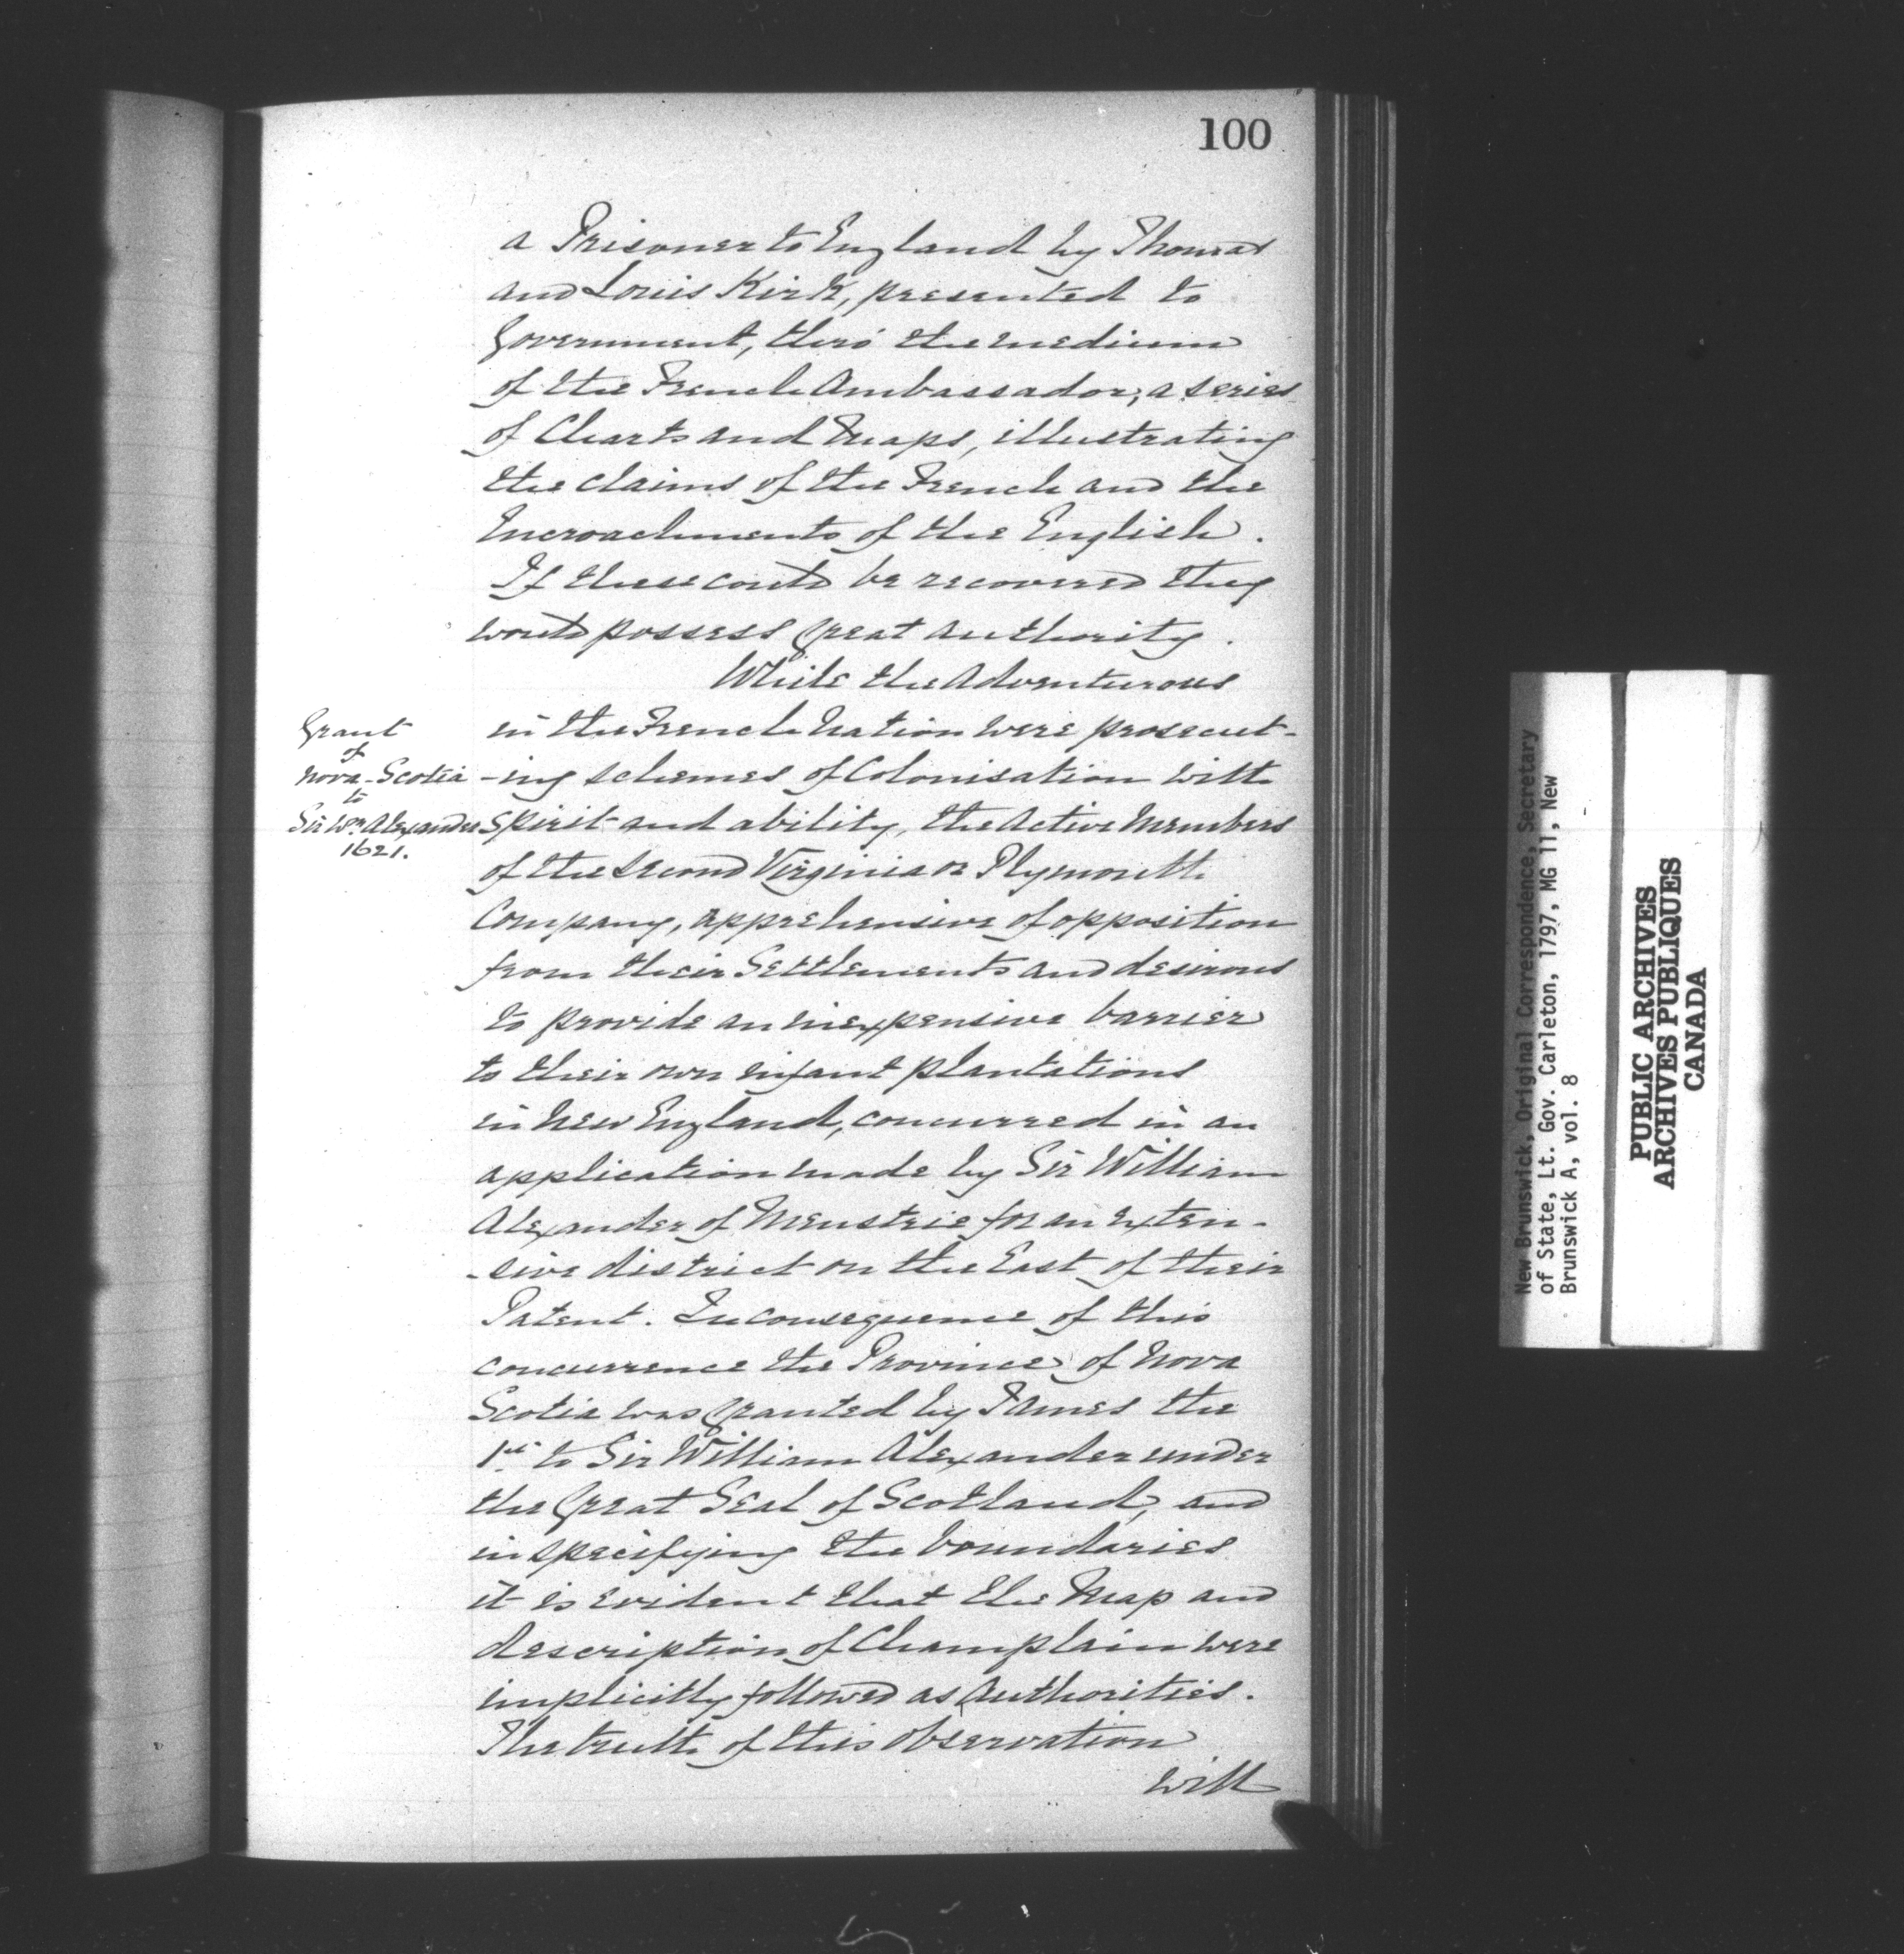 100
a Prisoner to England by Thomas
and Louis Kirk, presented to
Government, thro' the medium
of the French Ambassador, a series
of Charts and Maps, illustrating
the claims of the French and the
Encroachments of the English.
If these could be recovered they
would possess great authority.
While the Adventurous
in the French Nation were prosecut-
-ing schemes of Colonisation with
spirit and ability, the Active Members
of the Second Virginia or Plymouth
Company, apprehensive of opposition
from their Settlements and desirous
to provide an inexpensive barrier
to their own infant plantations
in New England, concurred in an
application made by Sir William
Alexander of Menstrie for an exten-
-sive district on the East of their
Patent. In consequence of this
concurrence the Province of Nova
Scotia was granted by James the
1st to Sir William Alexander under
the Great Seal of Scotland, and
in specifying the boundaries
it is evident that the Map and
description of Champlain were
implicitly followed as Authorities.
The truth of this observation
will
Grant
of
Nova-Scotia
to
Sir Wm Alexander
1621.
New Brunswick, Original Correspondence, Secretary
of State, Lt. Gov. Carleton, 1797, MG 11, New
Brunswick A, vol. 8
PUBLIC ARCHIVES
ARCHIVES PUBLIQUES
CANADA